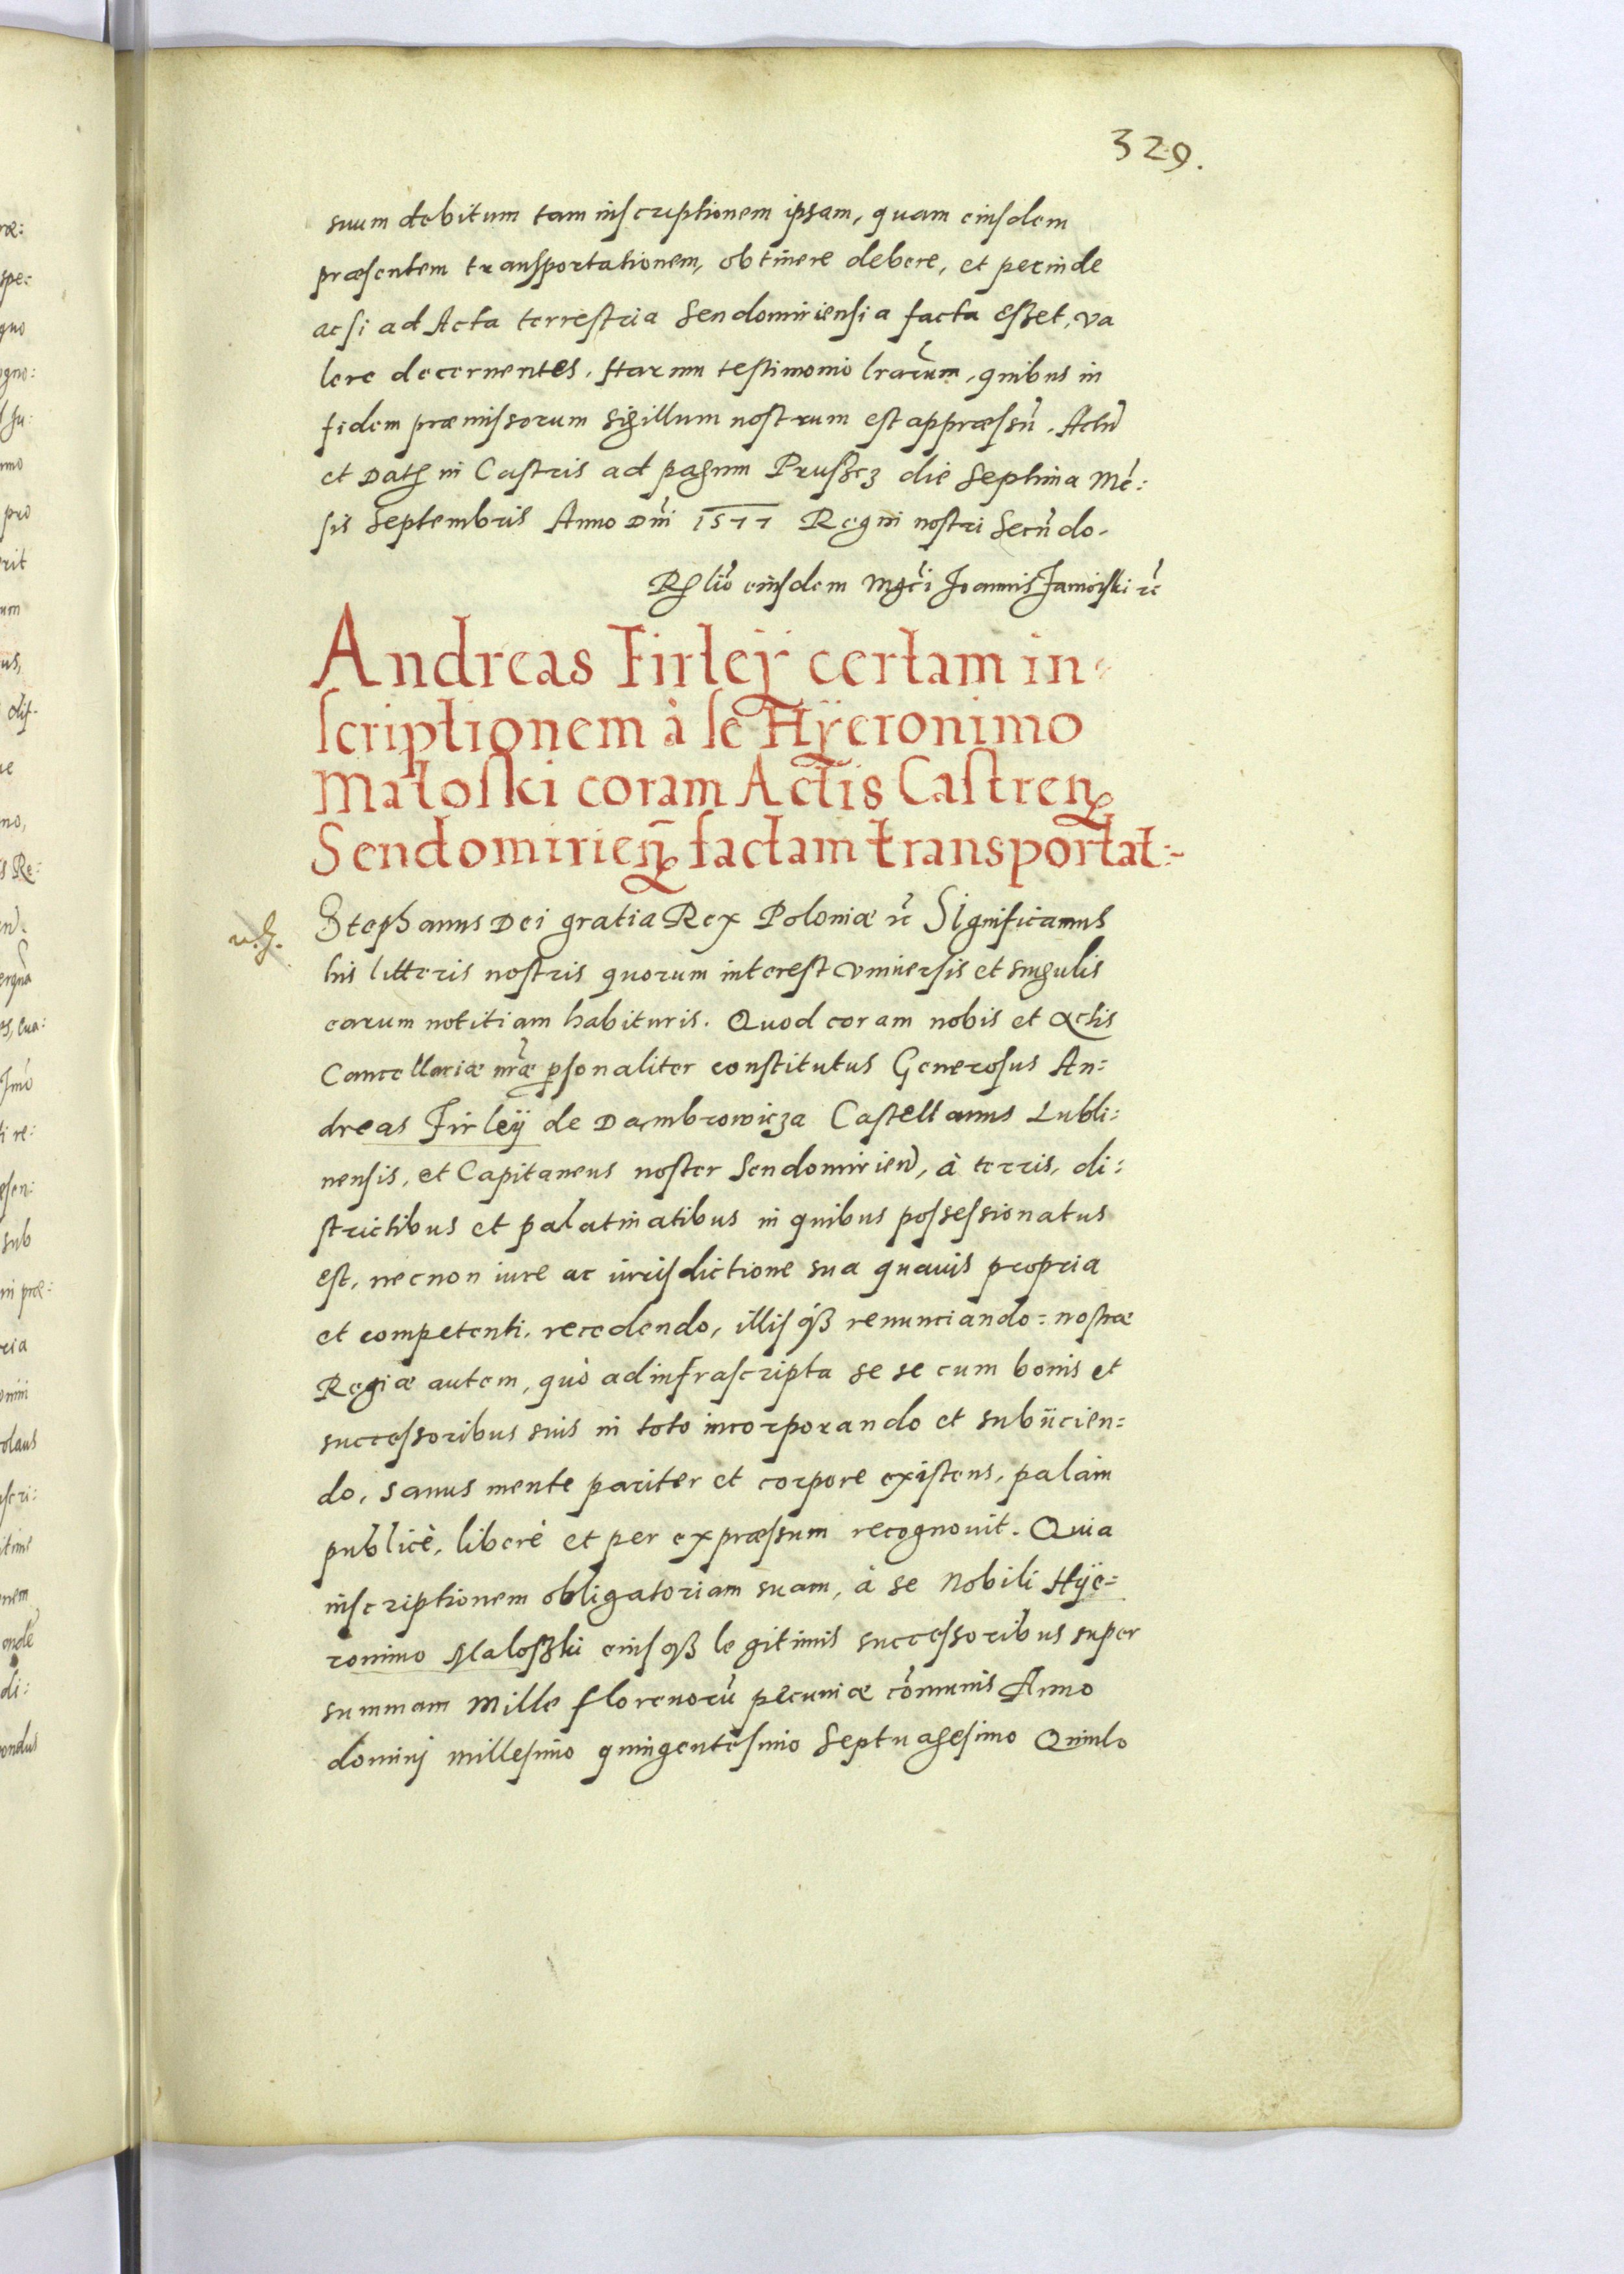 329.
suum debitum tam inscriptionem ipsam, quam eiusdem
præsentem transportationem, obtinere debere, et perinde
ac si ad Acta terrestria Sendomiriensia facta esset, va
lere decernentes. Harum testimonio lrarum, quibus in
fidem præmissorum sigillum nostrum est appræssũ. Actũ
et Dat in Castris ad pagum Pruszcz die Septima Mẽ:
sis Septembris Anno Dñi 1577 Regni nostri Secũdo.
Rlõ eiusdem Mgci Joannis Zamoiski rc
Andreas Firleÿ certam in-
scriptionem à se Hÿeronimo
Maloski coram Actis Castren
Sendomirien factam transportat:-
Stephanus Dei gratia Rex Poloniæ rc Significamus
his litteris nostris quorum interest vniuersis et singulis
earum notitiam habituris. Quod coram nobis et Actis
Cancellariæ nræ psonaliter constitutus Generosus An:
dreas Firleÿ de Dambrowicza Castellanus Lubli:
nensis, et Capitaneus noster Sendomirien, à terris, di:
strictibus et palatinatibus in quibus possessionatus
est, necnon iure ac iurisdictione sua quauis propria
et competenti, recedendo, illisqȝ renunciando: nostræ
Regiæ autem, quò ad infrascripta se se cum bonis et
successoribus suis in toto incorporando et subiicien:
do, sanus mente pariter et corpore existens, palam
publicè, liberè et per expræssum recognouit. Quia
inscriptionem obligatoriam suam, à se Nobili Hÿe:
ronimo Maloszki eiusqȝ legitimis successoribus super
summam Mille florenorũ pecuniæ cõmunis Anno
dominj millesimo quingentesimo Septuagesimo Quinto